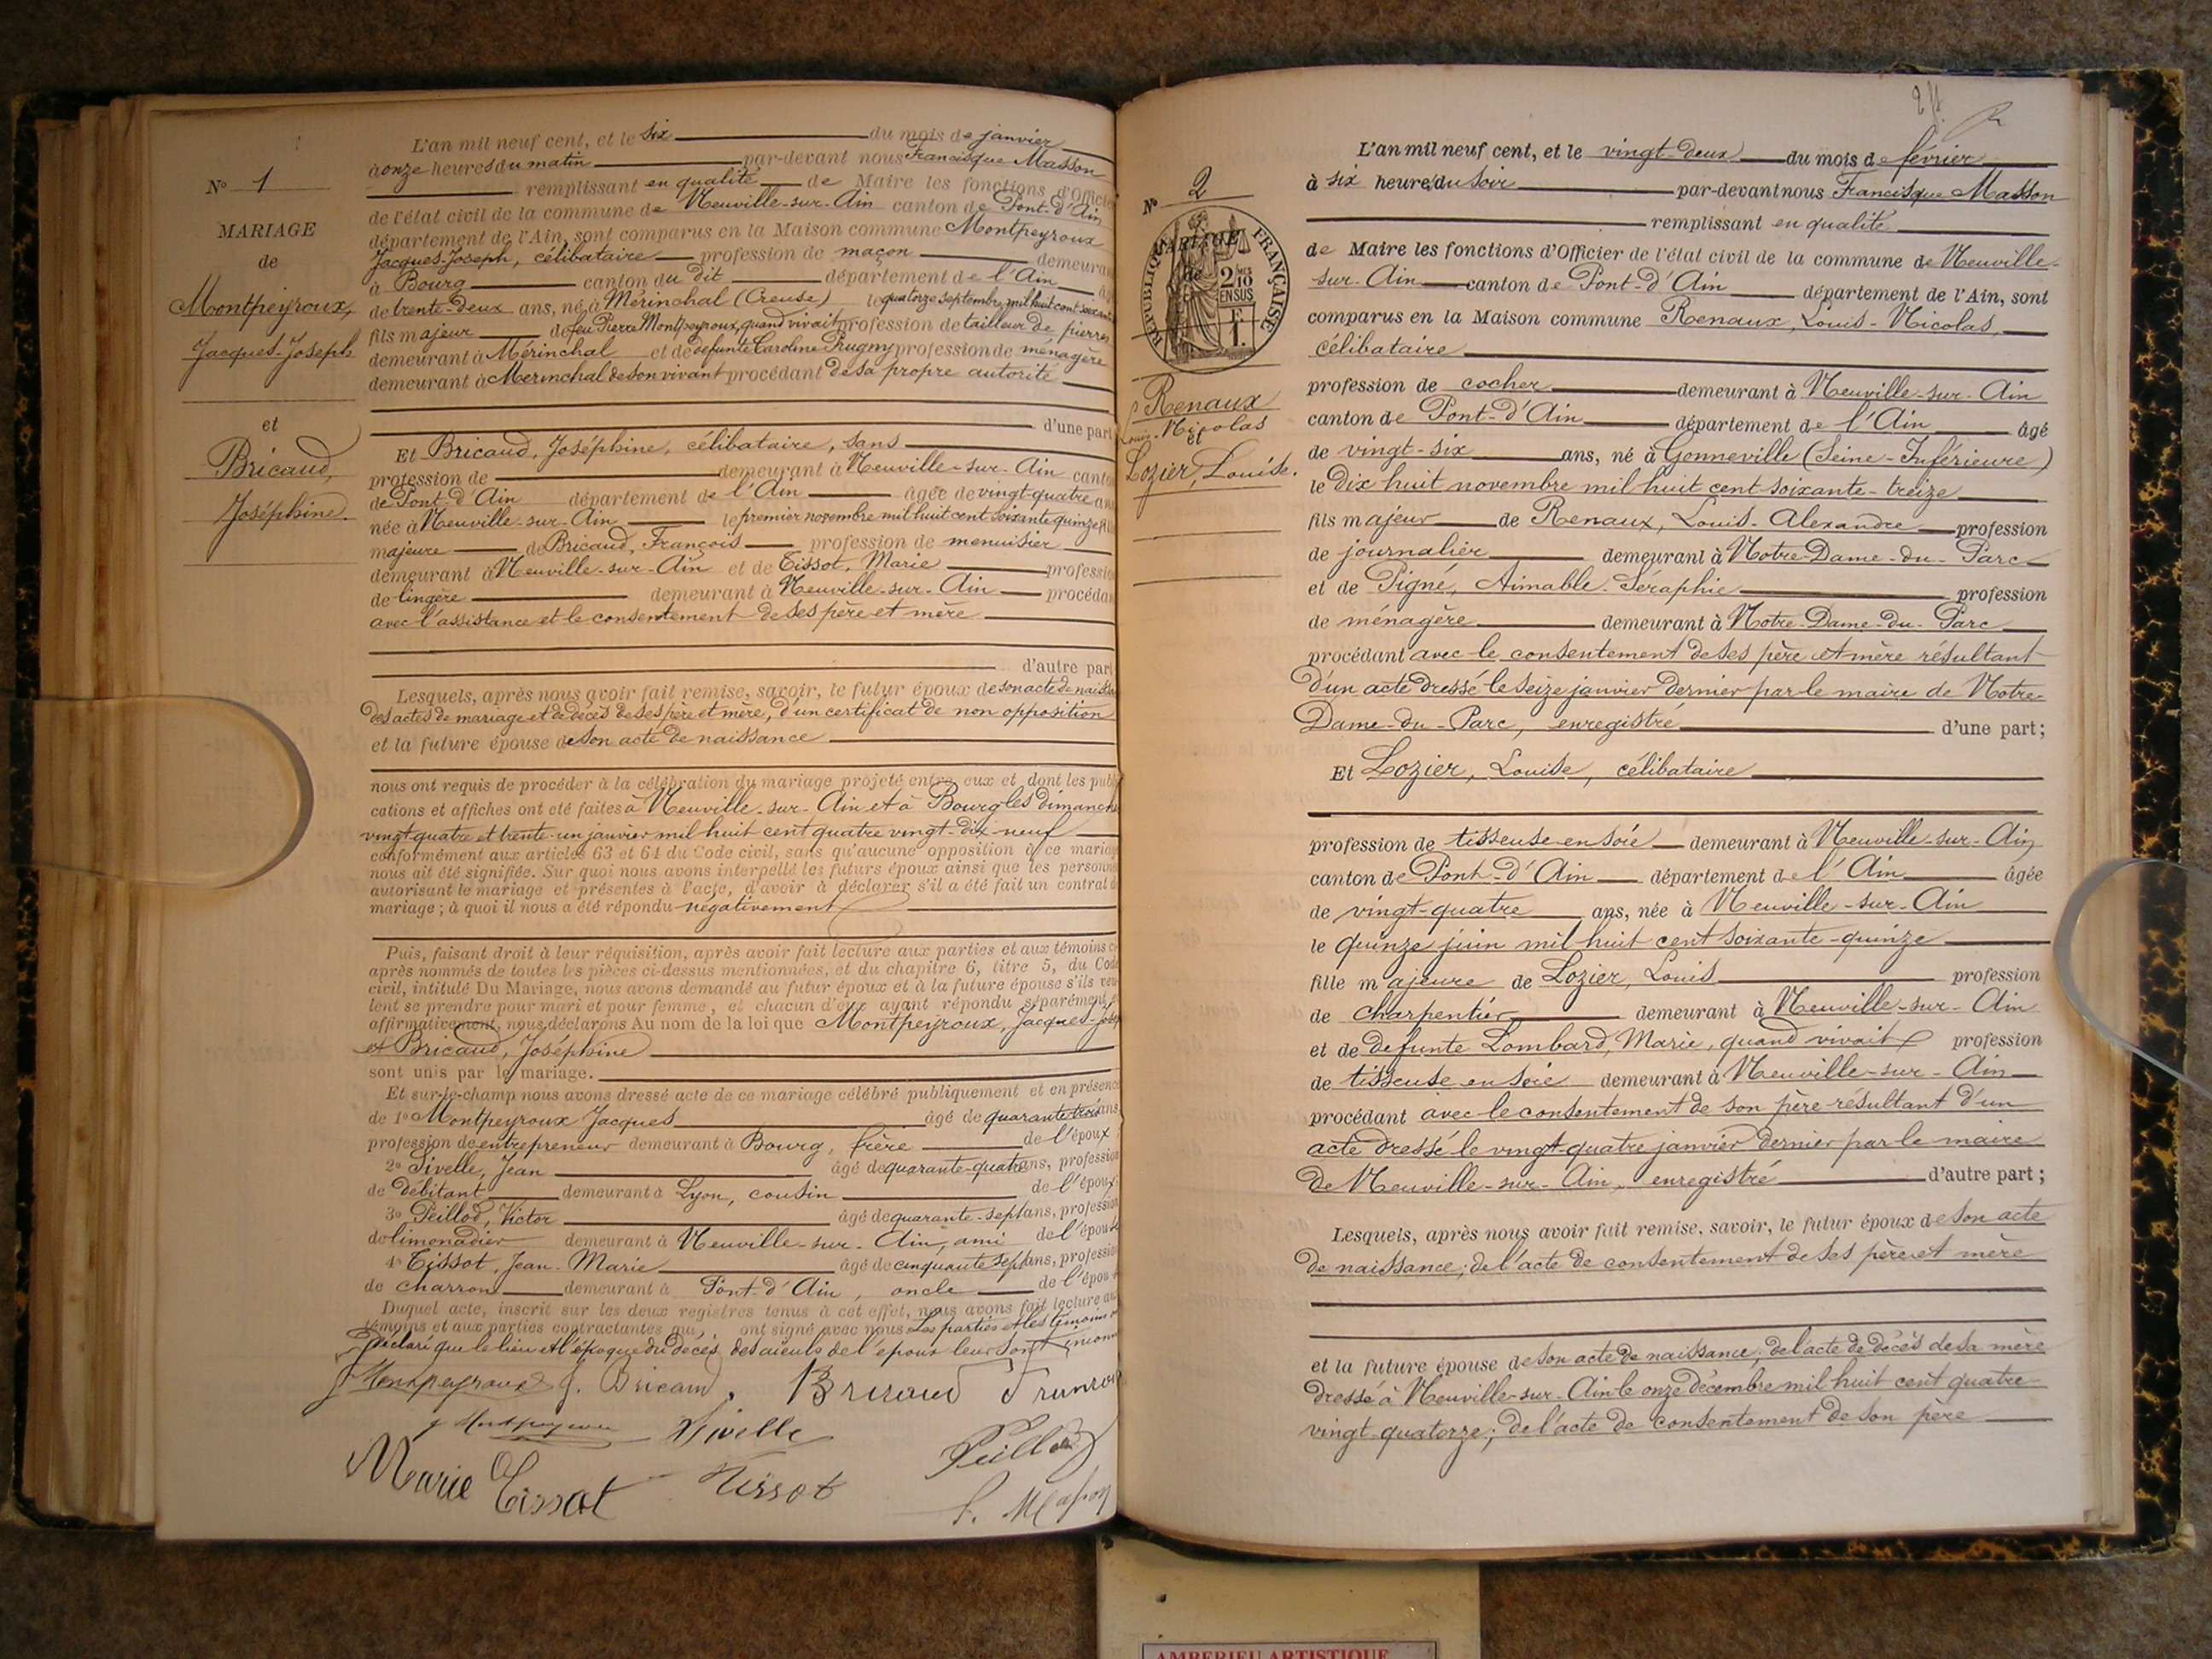 N° 1
MARIAGE
de
Montpeyroux,
Jacques-Joseph
et
Bricaud,
Joséphine.
L'an mil neuf cent, et le six du mois de janvier
à onze heures du matin par-devant nous Francisque Masson
remplissant en qualité de Maire les fonctions d'Officier
de l'état civil de la commune de Neuville-sur-Ain canton de Pont-d'Ain,
département de l'Ain, sont comparus en la Maison commune Montpeyroux
Jacques-Joseph, célibataire profession de maçon demeurant
à Bourg canton du dit département de l'Ain
de trente-deux ans, né à Mérinchal (Creuse) le quatorze septembre mil huit cent soixante
fils majeur de feu Pierre Montpeyroux, quand vivait profession de tailleur de pierres
demeurant à Mérinchal et de défunte Caroline Prugny profession de ménagère
demeurant à Mérinchal de son vivant procédant de sa propre autorité
d'une part
Et Bricaud, Joséphine, célibataire, sans
profession de demeurant à Neuville-sur-Ain canton
de Pont-d'Ain département de l'Ain âgée de vingt-quatre ans
née à Neuville-sur-Ain le premier novembre mil huit cent soixante quinze fille
majeure de Bricaud, François profession de menuisier
demeurant à Neuville-sur-Ain et de Tissot, Marie profession
de lingère demeurant à Neuville-sur-Ain procédant
avec l'assistance et le consentement de ses père et mère
d'autre part
Lesquels, après nous avoir fait remise, savoir, le futur époux de son acte de naissance
des actes de mariage et de décès de ses père et mère, d'un certificat de non opposition
et la future épouse de son acte de naissance
nous ont requis de procéder à la célébration du mariage projeté entre eux et dont les publi
cations et affiches ont été faites à Neuville-sur-Ain et à Bourg les dimanches
vingt quatre et trente-un janvier mil huit cent quatre vingt-dix-neuf
conformément aux articles 63 et 64 du Code civil, sans qu'aucune opposition à ce mariage
nous ait été signifiée. Sur quoi nous avons interpellé les futurs époux ainsi que les personnes
autorisant le mariage et présentes à l'acte, d'avoir à déclarer s'il a été fait un contrat de
mariage ; à quoi il nous a été répondu négativement
Puis, faisant droit à leur réquisition, après avoir fait lecture aux parties et aux témoins ci-
après nommés de toutes les pièces ci-dessus mentionnées, et du chapitre 6, titre 5, du Code
civil, intitulé Du Mariage, nous avons demandé au futur époux et à la future épouse s'ils veu
lent se prendre pour mari et pour femme, et chacun d'eux ayant répondu séparément et
affirmativement, nous déclarons Au nom de la loi que Montpeyroux, Jacques-Joseph
et Bricaud, Joséphine
sont unis par le mariage.
Et sur-le-champ nous avons dressé acte de ce mariage célébré publiquement et en présence
de 1° Montpeyroux Jacques âgé de quarante trois ans
profession de entrepreneur demeurant à Bourg, frère de l'époux
2° Sivelle, Jean âgé de quarante-quatre ans, profession
de débitant demeurant à Lyon, cousin de l'époux
3° Peillod, Victor âgé de quarante-sept ans, profession
de limonadier demeurant à Neuville-sur-Ain, ami de l'épouse
4° Tissot, Jean-Marie âgé de cinquante sept ans, profession
de charron demeurant à Pont-d'Ain, oncle de l'épouse
Duquel acte, inscrit sur les deux registres tenus à cet effet, nous avons fait lecture aux
témoins et aux parties contractantes qui ont signé avec nous Les parties et les témoins ont
déclaré que le lieu et l'époque du décès des aïeuls de l'époux leur sont inconnus
Montpeyroux J. Bricaud, Bricaud François
J Montpeyroux Sivelle Peillod
Marie Tissot Tissot F. Masson
2
N° 2
MARIAGE
de
RÉPUBLIQUE FRANÇAISE
2/10 EN SUS
1 F.
Renaux
Louis-Nicolas
et
Lozier, Louise.
L'an mil neuf cent, et le vingt-deux du mois de février
à six heures du soir par-devant nous Francisque Masson
remplissant en qualité
de Maire les fonctions d'Officier de l'état civil de la commune de Neuville-
sur-Ain canton de Pont-d'Ain département de l'Ain, sont
comparus en la Maison commune Renaux, Louis-Nicolas,
célibataire
profession de cocher demeurant à Neuville-sur-Ain
canton de Pont-d'Ain département de l'Ain âgé
de vingt-six ans, né à Gonneville (Seine-Inférieure)
le dix huit novembre mil huit cent soixante-treize
fils majeur de Renaux, Louis-Alexandre profession
de journalier demeurant à Notre-Dame-du-Parc
et de Pigné, Aimable-Séraphie profession
de ménagère demeurant à Notre-Dame-du-Parc
procédant avec le consentement de ses père et mère résultant
d'un acte dressé le seize janvier dernier par le maire de Notre-
Dame-du-Parc, enregistré d'une part;
Et Lozier, Louise, célibataire
profession de tisseuse en soie demeurant à Neuville-sur-Ain
canton de Pont-d'Ain département de l'Ain âgée
de vingt-quatre ans, née à Neuville-sur-Ain
le quinze juin mil huit cent soixante-quinze
fille majeure de Lozier, Louis profession
de charpentier demeurant à Neuville-sur-Ain
et de défunte Lombard, Marie, quand vivait profession
de tisseuse en soie demeurant à Neuville-sur-Ain
procédant avec le consentement de son père résultant d'un
acte dressé le vingt-quatre janvier dernier par le maire
de Neuville-sur-Ain, enregistré d'autre part ;
Lesquels, après nous avoir fait remise, savoir, le futur époux de son acte
de naissance ; de l'acte de consentement de ses père et mère
et la future épouse de son acte de naissance ; de l'acte de décès de sa mère
dressé à Neuville-sur-Ain le onze décembre mil huit cent quatre-
vingt-quatorze ; de l'acte de consentement de son père
AMBERIEU ARTISTIQUE